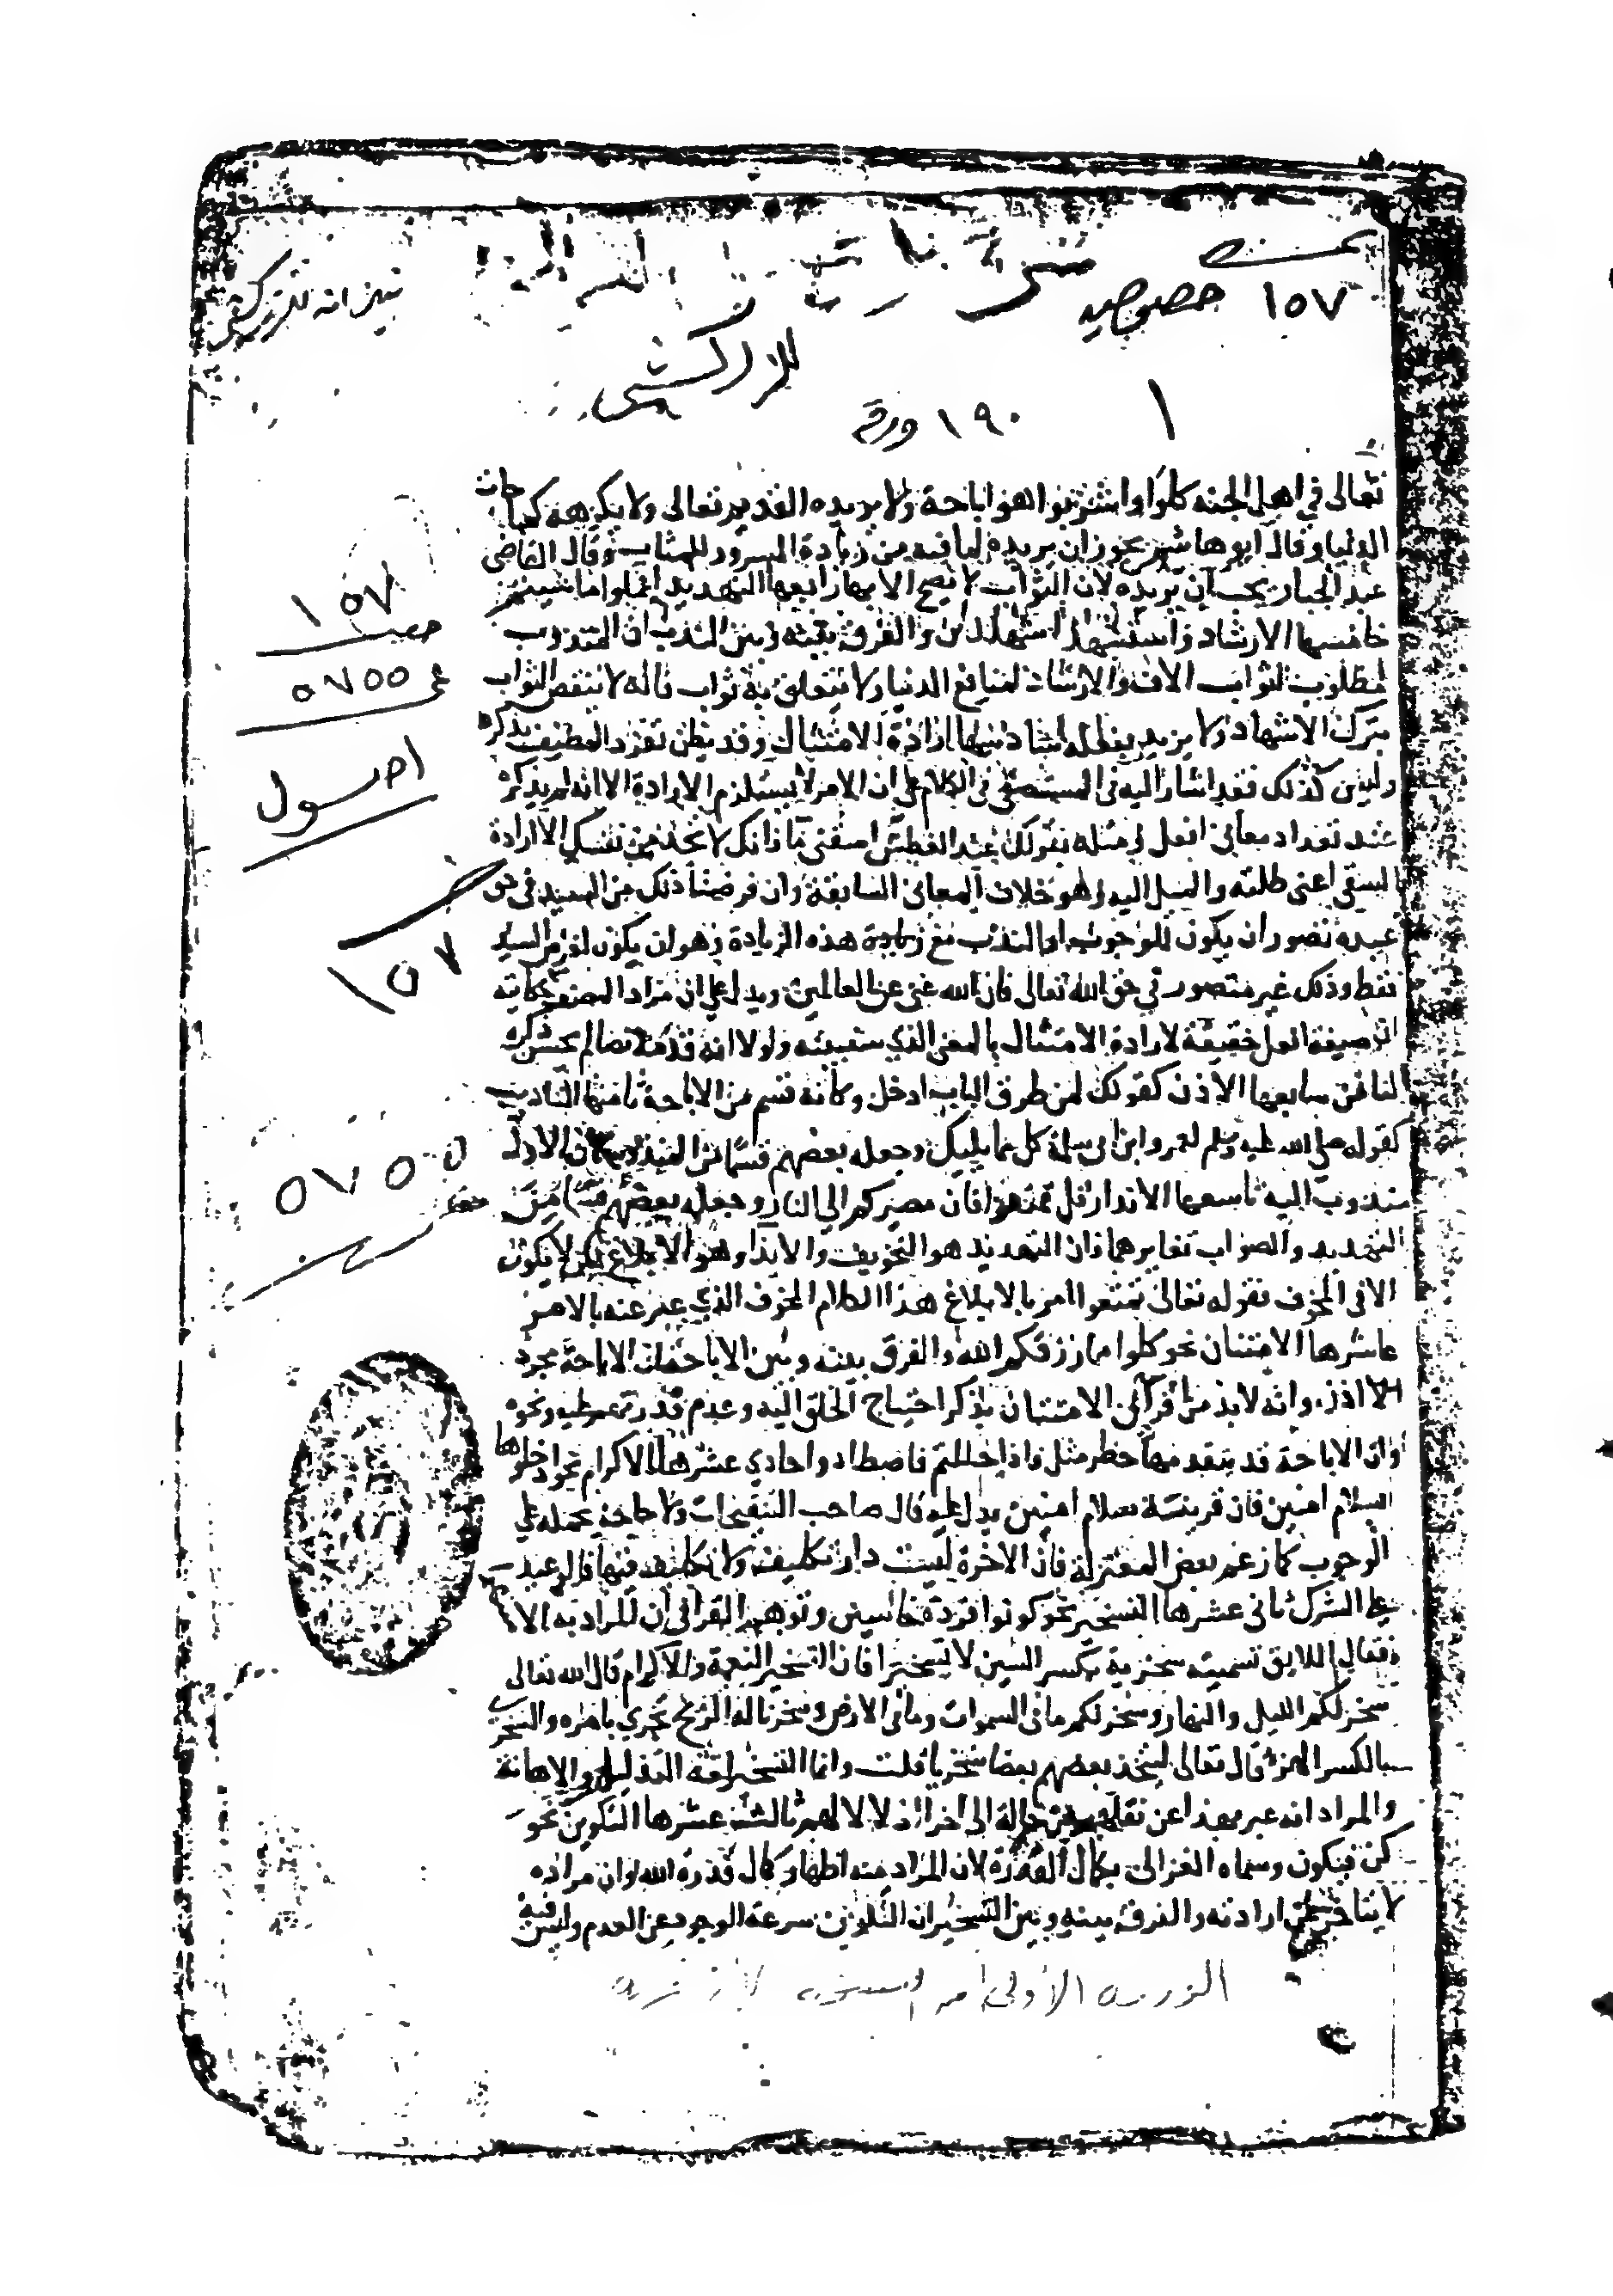 ١٥٧ خصوصيه
للزركشي
١٩٠ ورقة
١
تعالى في اهل الجنه كلوا واشربوا هو اباحة ولا يريده القديم تعالى ولا يكرهه كمباحات
الدنيا وقال ابو هاشم يجوز ان يريده لما فيه من زيادة السرور للمثاب وقال القاضي
عبد الجبار يجب ان يريده لان الثواب لا يصح الا بها رابعها التهديد اعملوا ما شيتم
خامسها الارشاد واستشهدوا شهيدين والفرق بينه وبين الندب ان المندوب
مطلوب لثواب الاخرة والارشاد لمنافع الدنيا ولا يتعلق به ثواب فانه لا ينقص الثواب
بترك الاشهاد ولا يزيد بفعله سادسها ارادة الامتثال وقد يظن تفرد المصنف بذكره
وليس كذلك فقد اشار اليه في المستصفى في الكلام على ان الامر لا يستلزم الارادة الا انه لم يذكره
عند تعداد معاني افعل ومثله بقولك عند العطش اسقني ما فانك لا تجد من نفسك الا ارادة
السقي اعني طلبه والميل اليه وهو خلاف المعاني السابقة وان فرضنا ذلك من السيد في حق
عبده تصور ان يكون للوجوب او الندب مع زيادة هذه الزيادة وهو ان يكون لغرض السيد
فقط وذلك غير متصور في حق الله تعالى فان الله غني عن العالمين ويدل على ان مراد المصنف حكاية
ان صيغة افعل حقيقة لارادة الامتثال بالمعنى الذي سنبينه ولولا انه قدمه ايضا لم يحسن ذكره
لنا فمن سابعها الاذن كقولك لمن طرق الباب ادخل وكانه قسم من الاباحة ثامنها التاديب
كقوله صلى الله عليه وسلم لعمر وابن ابي سلمة كل مما يليك وجعله بعضهم قسما من الندب لان الادب
مندوب اليه تاسعها الانذار قل تمتعوا فان مصيركم الى النار وجعله بعضهم قسما من
التهديد والصواب تغايرهما فان التهديد هو التخويف والانذار هو الابلاغ لكن لا يكون
الا في المخوف فقوله تعالى تمتعوا امر بالابلاغ هذا الكلام المخوف الذي عبر عنه بالامر
عاشرها الامتنان نحو كلوا مما رزقكم الله والفرق بينه وبين الاباحة ان الاباحة مجرد
الاذن وانه لا بد من اقتران الامتنان بذكر احتياج الخلق اليه وعدم قدرتهم عليه ونحوه
وان الاباحة قد يتقدمها حظر مثل واذا حللتم فاصطادوا حادي عشرها الاكرام نحو ادخلوها
بسلام امنين فان قرينة بسلام امنين يدل عليه قال صاحب التنقيحات ولا حاجة بحمله على
الوجوب كما زعم بعض المعتزلة فان الاخرة ليست دار تكليف ولا تكليف فيها
على الترك ثاني عشرها التسخير نحو كونوا قردة خاسين وتوهم القرافي ان المراد به الا
فقال اللايق تسميته سخرية بكسر السين لا تسخيرا فان التسخير النعمة والاكرام قال الله تعالى
سخر لكم الليل والنهار وسخر لكم ما في السموات وما في الارض وسخرنا له الريح تجري بامره والسخري
بالكسر الهزء قال تعالى ليتخذ بعضهم بعضا سخريا قلت وانما التسخير لغة التذليل والاهانة
والمراد انه عبر بهذا عن نقلهم من حالة الى اخرى اذلالا لهم ثالث عشرها التكوين نحو
كن فيكون وسماه الغزالي بكمال القدرة لان المراد منه اظهار كمال قدرة الله وان مراده
لا يتاخر عن ارادته والفرق بينه وبين التسخير ان التكوين سرعة الوجود عن العدم وليس فيه
١٥٧
٥٧٥٥
اصول
١٥٧
٥٧٥٥
الورقة الأولى من النسخة